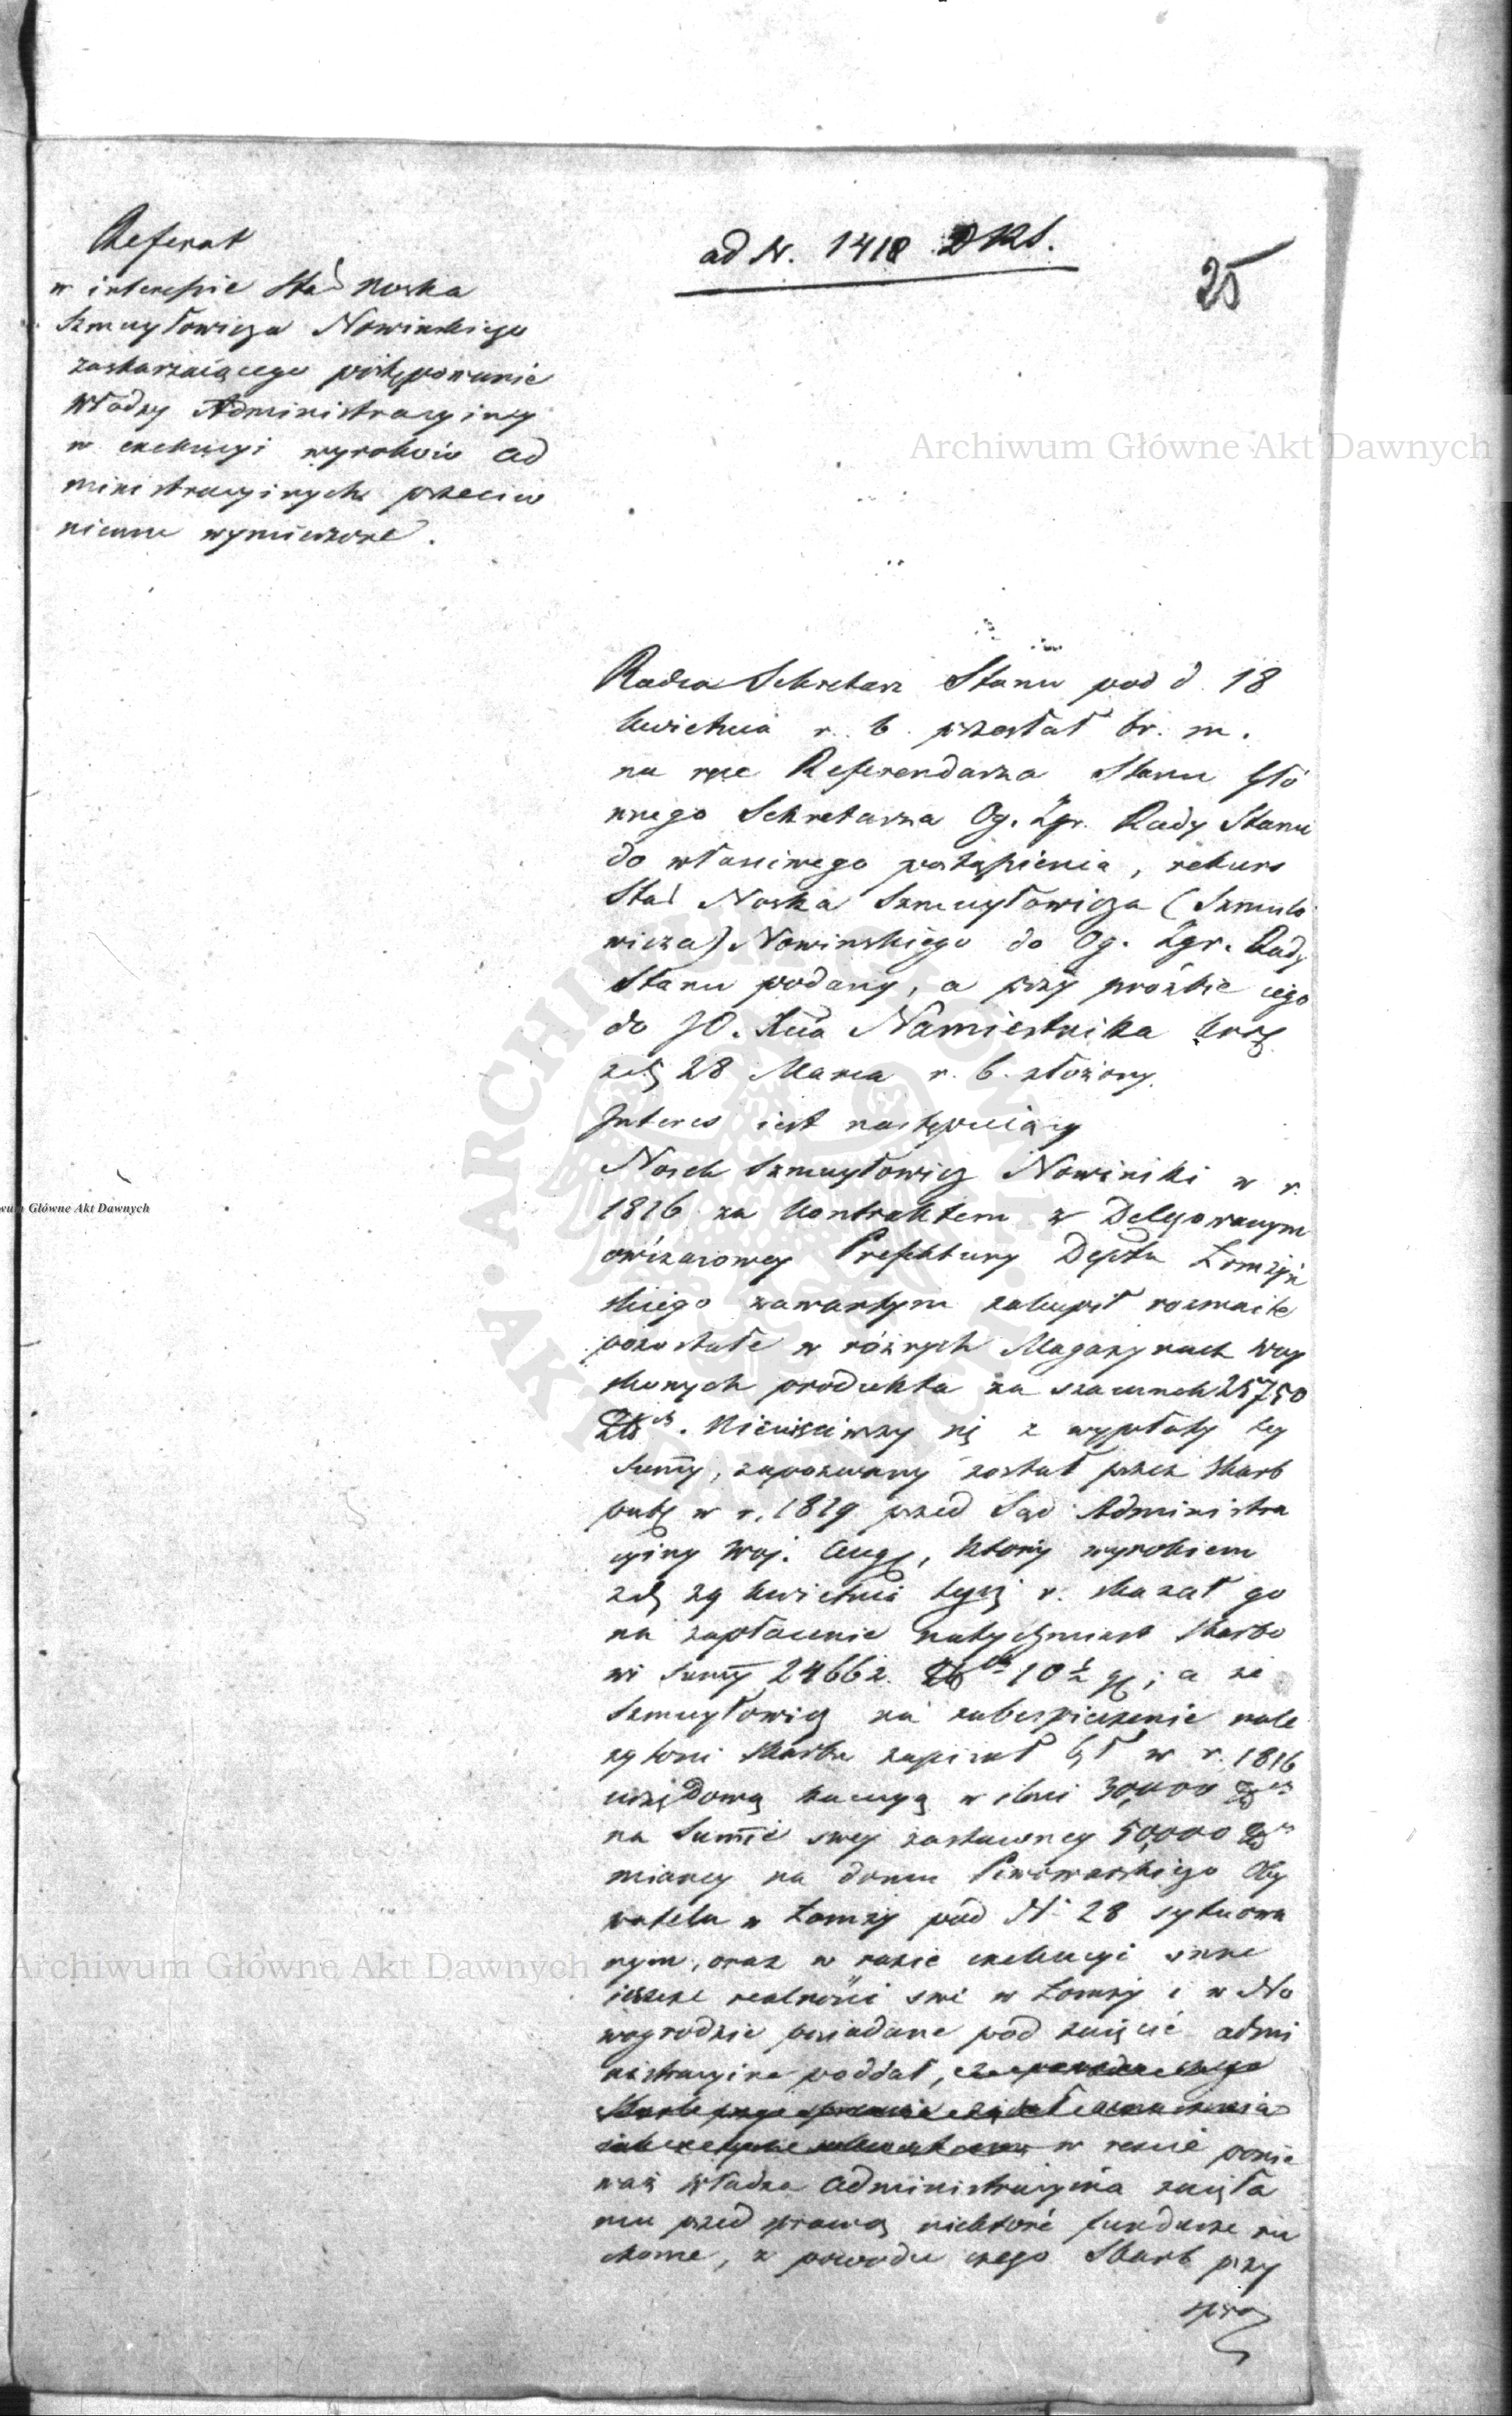 ad N. 1418 DKS.
25
Referat
w interessie Stað Noska
Szmuyłowicza Nowinskiego
zaskarzaiącego postępowanie
Władzy Administracyiney
w exekucyi wyroków ad
ministracyinych przeciw
niemu wymierzone.
Radca Sekretarz Stanu pod d. 18
kwietnia r. b. przesłał br. m.
na ręce Referendarza Stanu Głó
wnego Sekretarza Og. Zgr. Rady Stanu
do właściwego postąpienia, rekurs
Noska Szmuyłowicza (Szmulo
wicza) Nowinskiego do Og. Zgr. Rady
Stanu podany, a przy prośbie iego
do JO. Xcia Namiestnika
28 Marca r. b. złożony.
Interes iest następuiący
Nosek Szmuyłowicz Nowinski w r.
1816 za kontraktem z Delegowanym
owczasowey Prefektury Deptu Łomżyń
skiego zawartym zakupił rozmaite
pozostałe w różnych Magazynach woy
skowych produkta za szacunek 25750
Złch. Nieuiściwszy się z wypłaty tey
Summy, zapozwany został przez Skarb
publ w r. 1819 przed Sąd Administra
cyiny Woj. Aug, który wyrokiem
29 kwietnia tegoż r. skazał go
na zapłacenie natychmiast Skarbo
wi Summy 24662. Złch 10½ g; a że
Szmuyłowicz na zabespieczenie nale
żytości Skarbu zapisał był w r. 1816
urzędową kaucyą w ilości 30,000 Złch
na Summie swey zastawney 50,000 Złch
mianey na domu Piwowarskiego Oby
watela w Łomży pod N 28 sytuowa
nym, oraz w razie exekucyi inne
ieszcze realności swe w Łomży i w No
wogrodzie posiadane pod zaięcie admi
nistracyine poddał,
w resscie ponie
waż Władza Administracyina zaięła
mu przed sprawą niektóre fundusze ru
chome, z powodu czego Skarb przy
spra
Archiwum Główne Akt Dawnych
Archiwum Główne Akt Dawnych
wum Główne Akt Dawnych
ARCHIWUM GŁÓWNE AKT DAWNYCH